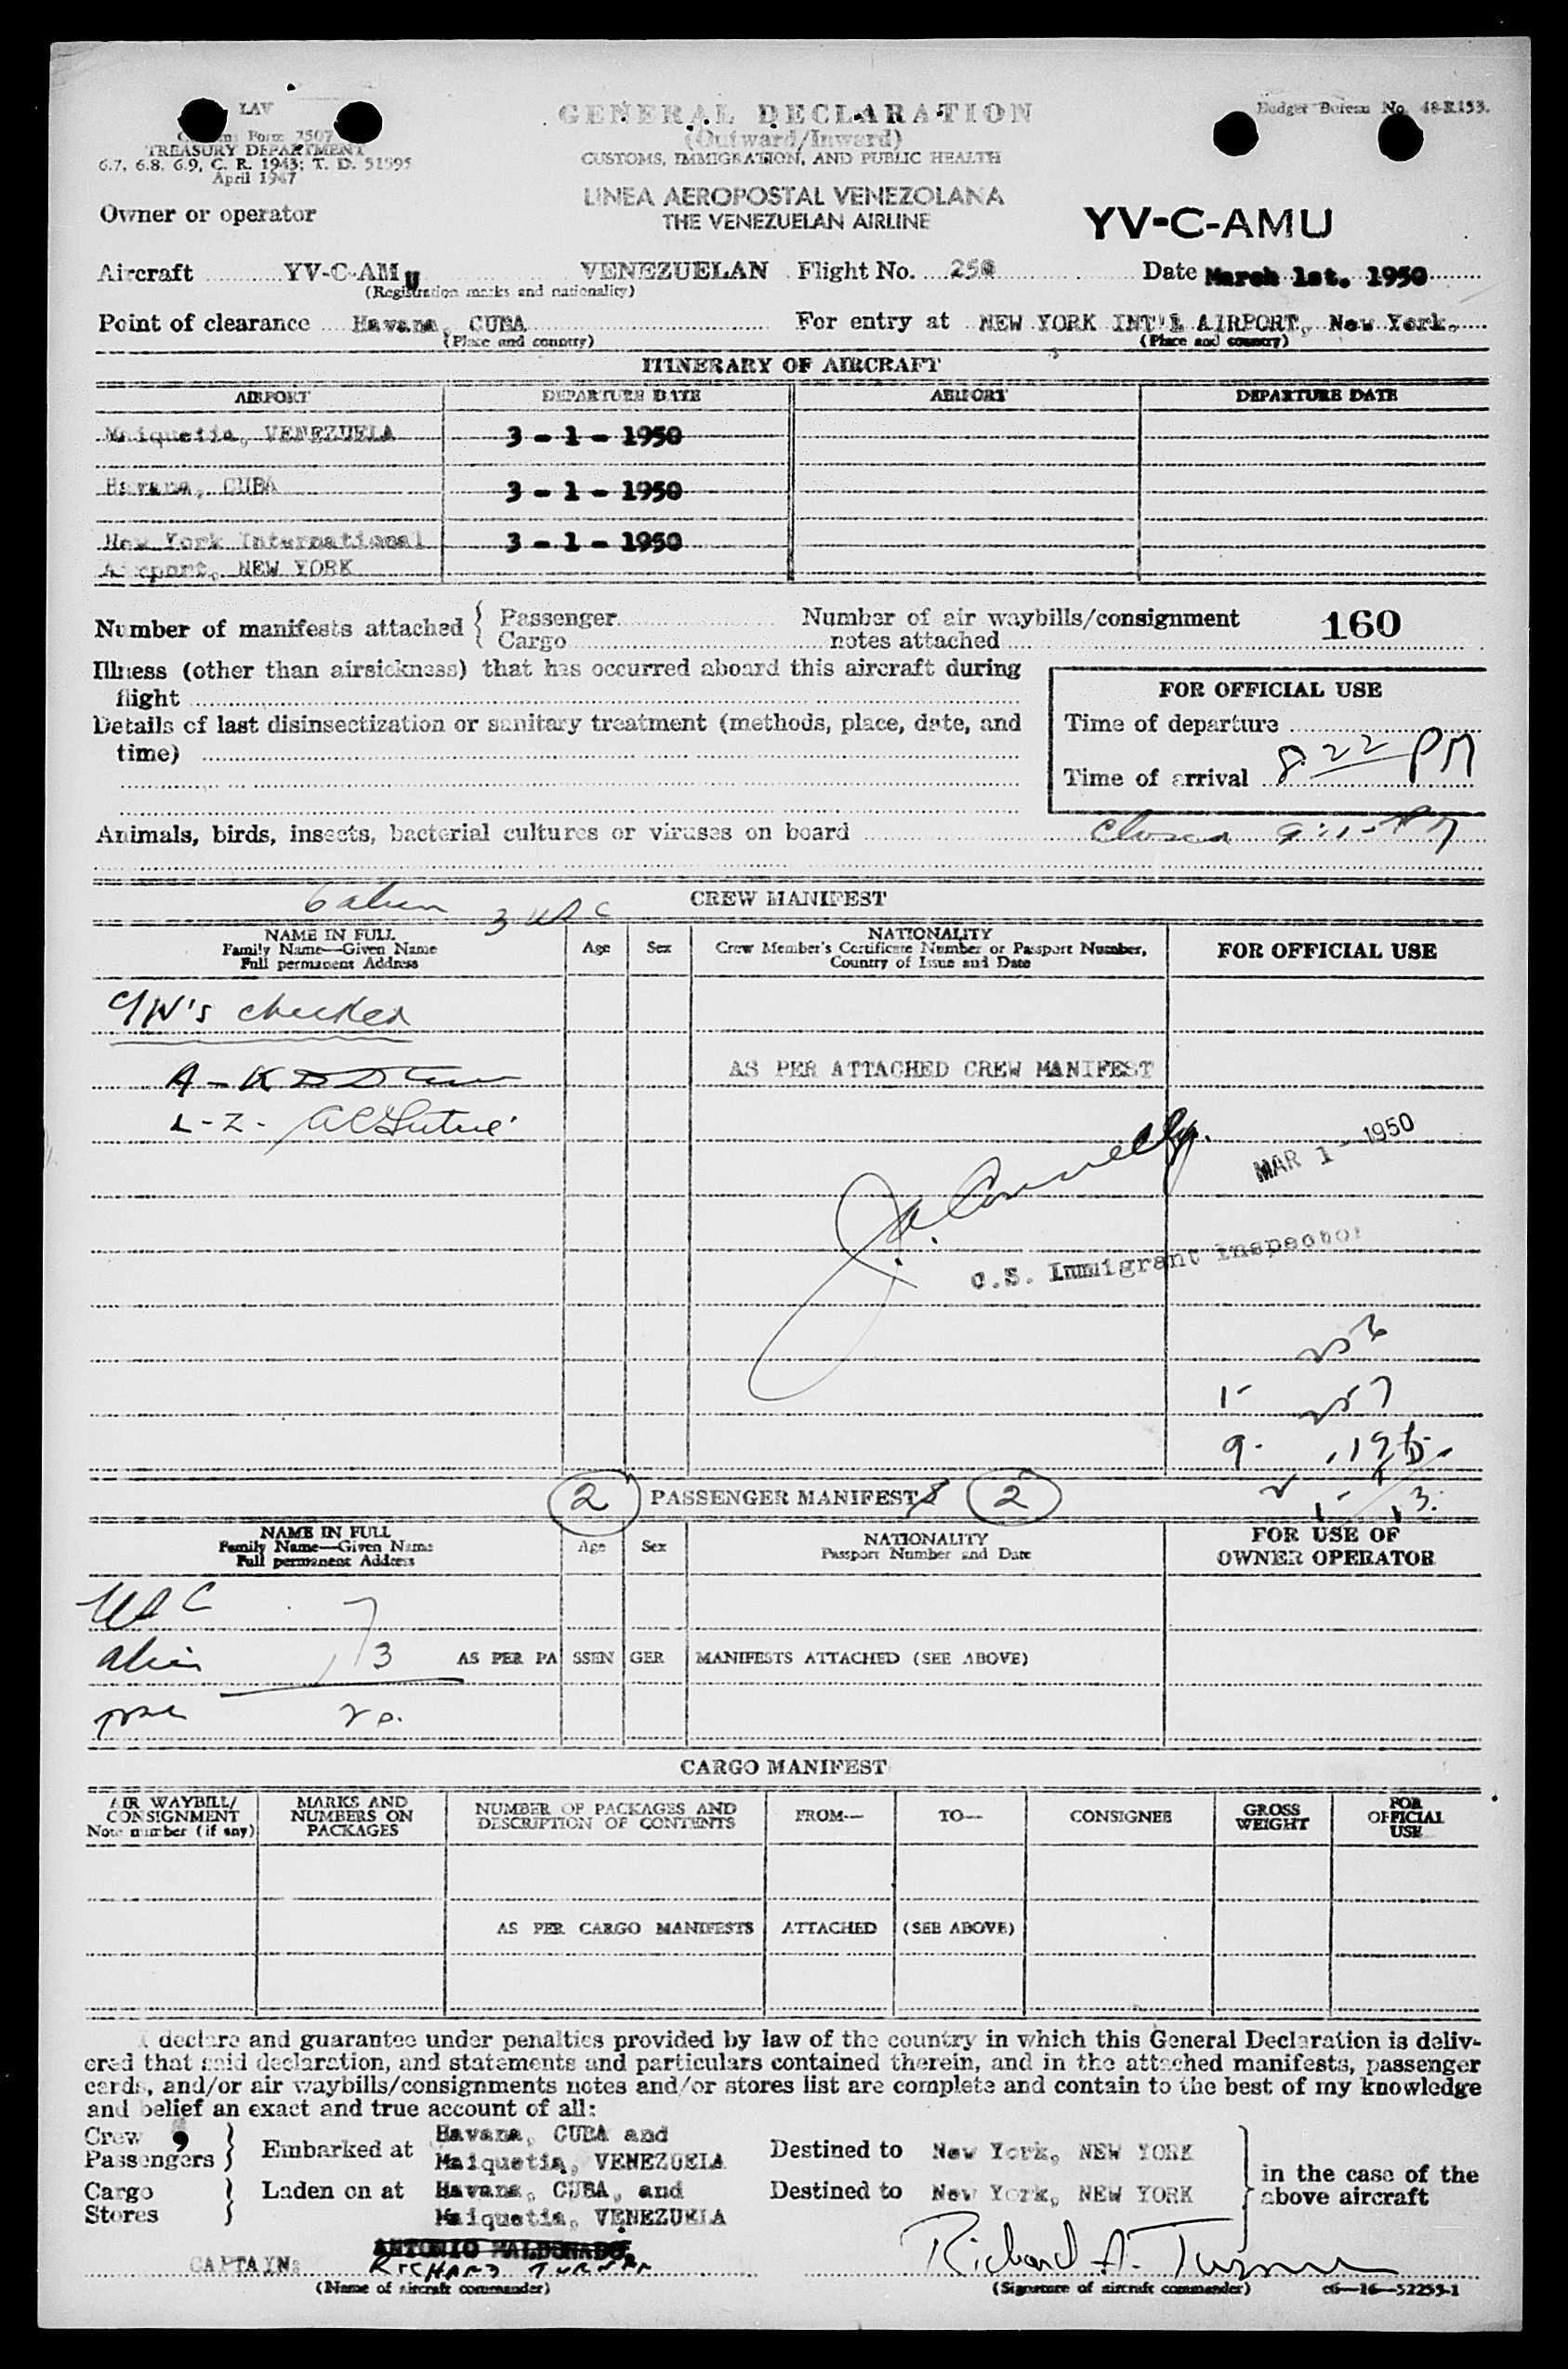 LAV
Customs Form 7507
TREASURY DEPARTMENT
6.7, 6.8, 6.9, C. R. 1943; T. D. 51595
April 1947
GENERAL DECLARATION
(Outward/Inward)
CUSTOMS, IMMIGRATION, AND PUBLIC HEALTH
Budget Bureau No. 48-R153.
LINEA AEROPOSTAL VENEZOLANA
THE VENEZUELAN AIRLINE
Owner or operator
YV-C-AMU
Aircraft YV-C-AMU VENEZUELAN Flight No. 250 Date March 1st. 1950
(Registration marks and nationality)
Point of clearance Havana, CUBA For entry at NEW YORK INT'L AIRPORT, New York.
(Place and country) (Place and country)
ITINERARY OF AIRCRAFT
AIRPORT DEPARTURE DATE AIRPORT DEPARTURE DATE
Maiquetia, VENEZUELA 3 - 1 - 1950
Havana, CUBA 3 - 1 - 1950
New York International 3 - 1 - 1950
Airport, NEW YORK
Number of manifests attached { Passenger Number of air waybills/consignment 160
Cargo notes attached
Illness (other than airsickness) that has occurred aboard this aircraft during
flight
FOR OFFICIAL USE
Details of last disinsectization or sanitary treatment (methods, place, date, and
time)
Time of departure
Time of arrival 8:22 PM
Animals, birds, insects, bacterial cultures or viruses on board
Closed
6 alien 3 USC
CREW MANIFEST
NAME IN FULL
Family Name—Given Name
Full permanent Address
Age Sex
NATIONALITY
Crew Member's Certificate Number or Passport Number,
Country of Issue and Date
FOR OFFICIAL USE
checked
AS PER ATTACHED CREW MANIFEST
MAR 1 - 1950
U.S. Immigrant Inspector
2 PASSENGER MANIFEST 2
NAME IN FULL
Family Name—Given Name
Full permanent Address
Age Sex
NATIONALITY
Passport Number and Date
FOR USE OF
OWNER OPERATOR
USC 7
alien 13
AS PER PASSENGER MANIFESTS ATTACHED (SEE ABOVE)
CARGO MANIFEST
AIR WAYBILL/
CONSIGNMENT
Note number (if any)
MARKS AND
NUMBERS ON
PACKAGES
NUMBER OF PACKAGES AND
DESCRIPTION OF CONTENTS
FROM—
TO—
CONSIGNEE
GROSS
WEIGHT
FOR
OFFICIAL
USE
AS PER CARGO MANIFESTS ATTACHED (SEE ABOVE)
I declare and guarantee under penalties provided by law of the country in which this General Declaration is deliv-
ered that said declaration, and statements and particulars contained therein, and in the attached manifests, passenger
cards, and/or air waybills/consignments notes and/or stores list are complete and contain to the best of my knowledge
and belief an exact and true account of all:
Crew
Passengers } Embarked at Havana, CUBA and
Maiquetia, VENEZUELA
Destined to New York, NEW YORK
Cargo
Stores } Laden on at Havana, CUBA, and
Maiquetia, VENEZUELA
Destined to New York, NEW YORK
in the case of the
above aircraft
ANTONIO MALDONADO
CAPTAIN: RICHARD TURNER
Richard A. Turner
(Name of aircraft commander) (Signature of aircraft commander) c6—16—52255-1